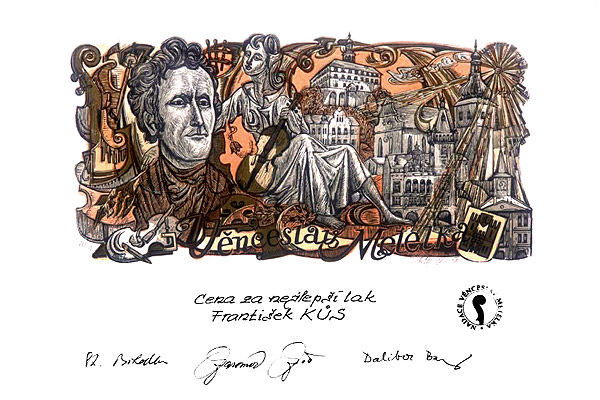 Věnceslav Metelka
Cena za nejlepší lak
František KŮS
NADACE VĚNCESLAVA METELKA
Dalibor